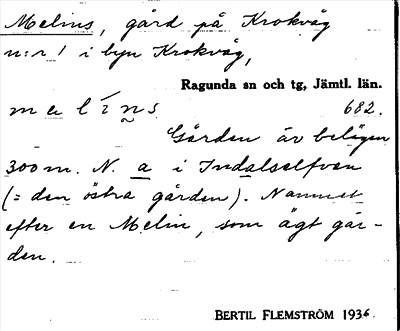 Melins, gård på Krokvåg
n:r 1 i byn Krokvåg,
Ragunda sn och tg, Jämtl. län.
melíns 682.
Gården är belägen
300 m. N. a i Indalselfven
(= den östra gården). Namnet
efter en Melin, som ägt går-
den.
BERTIL FLEMSTRÖM 1936.